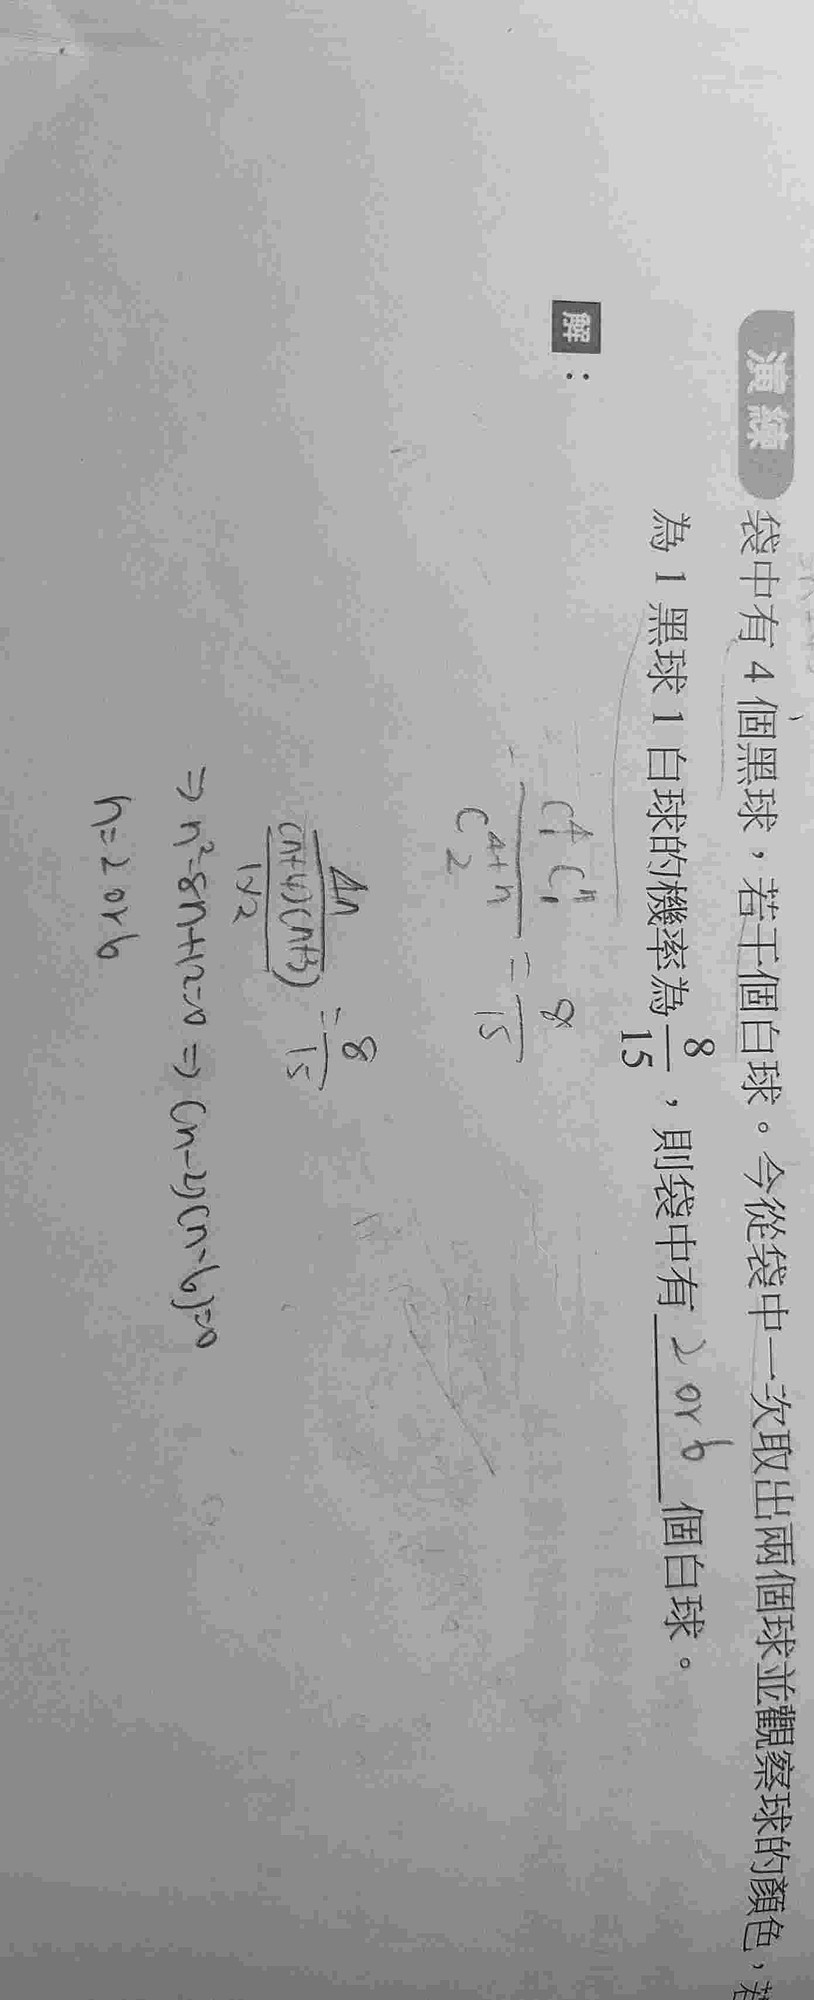 演練 袋中有 4 個黑球，若干個白球。今從袋中一次取出兩個球並觀察球的顏色，若
為 1 黑球 1 白球的機率為 8/15，則袋中有 2 or 6 個白球。
解：
C₁⁴ C₁ⁿ / C₂⁴⁺ⁿ = 8/15
4n / ((n+4)(n+3) / 1×2) = 8/15
⇒ n²-8n+12=0 ⇒ (n-2)(n-6)=0
n=2 or 6